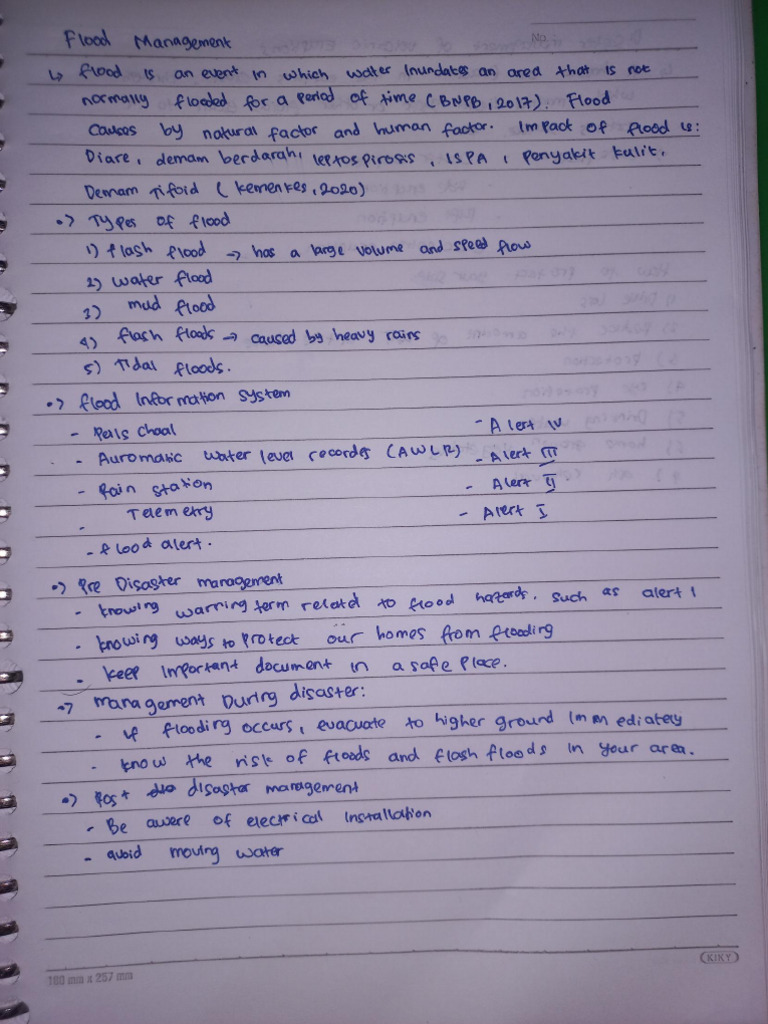 No.
Flood Management
↳ flood is an event in which water Inundates an area that is not
normally flooded for a period of time (BNPB, 2017). Flood
causes by natural factor and human factor. Impact of flood is:
Diare, demam berdarah, leptospirosis, ISPA, penyakit kulit,
Demam Tifoid (Kemenkes, 2020)
•) Types of flood
1) flash flood → has a large volume and speed flow
2) water flood
3) mud flood
4) flash floods → caused by heavy rains
5) Tidal floods.
•) flood Information system
- Peils chaal - Alert IV
- Auromatic water level recorder (AWLR) - Alert III
- Rain station - Alert II
- Telemetry - Alert I
- flood alert.
•) Pre Disaster management
- knowing warring term relatd to flood hazards. such as alert 1
- knowing ways to protect our homes from flooding
- keep important document in a safe place.
•) management During disaster:
- if flooding occurs, evacuate to higher ground Immediately
- know the risk of floods and flash floods in your area.
•) Post disaster management
- Be awere of electrical Installation
- avoid moving water
KIKY
160 mm x 257 mm